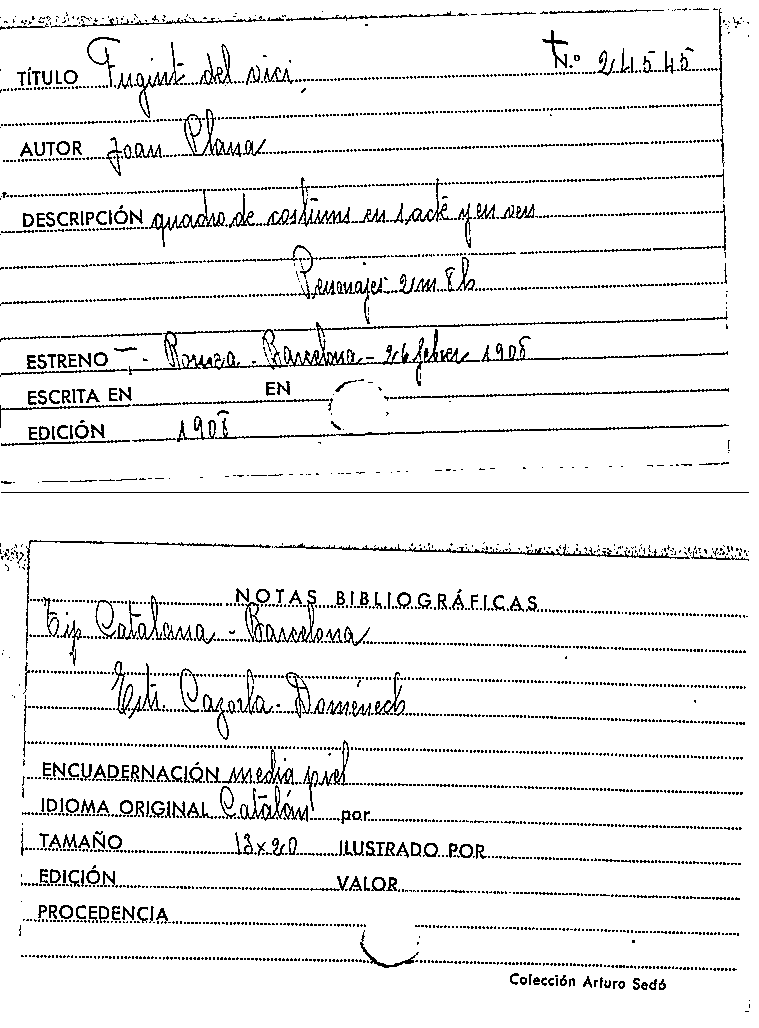 TÍTULO Fugint del vici N.º 24545
AUTOR Joan Plana
DESCRIPCIÓN quadro de costums en 1 acte y en vers
Personajes 2 m 8 h
ESTRENO T. - Romea - Barcelona - 26 febrer 1908
ESCRITA EN EN
EDICIÓN 1908
NOTAS BIBLIOGRÁFICAS
Tip Catalana - Barcelona
Estr. Cazorla - Doménech
ENCUADERNACIÓN media piel
IDIOMA ORIGINAL Catalán por
TAMAÑO 13x20 ILUSTRADO POR
EDICIÓN VALOR
PROCEDENCIA
Colección Arturo Sedó